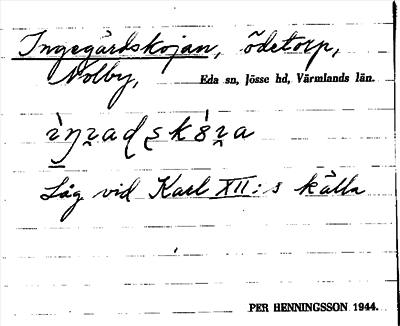 Ingegärdskojan, ödetorp,
Nolby, Eda sn, Jösse hd, Värmlands län.
Låg vid Karl XII:s källa
PER HENNINGSSON 1944.